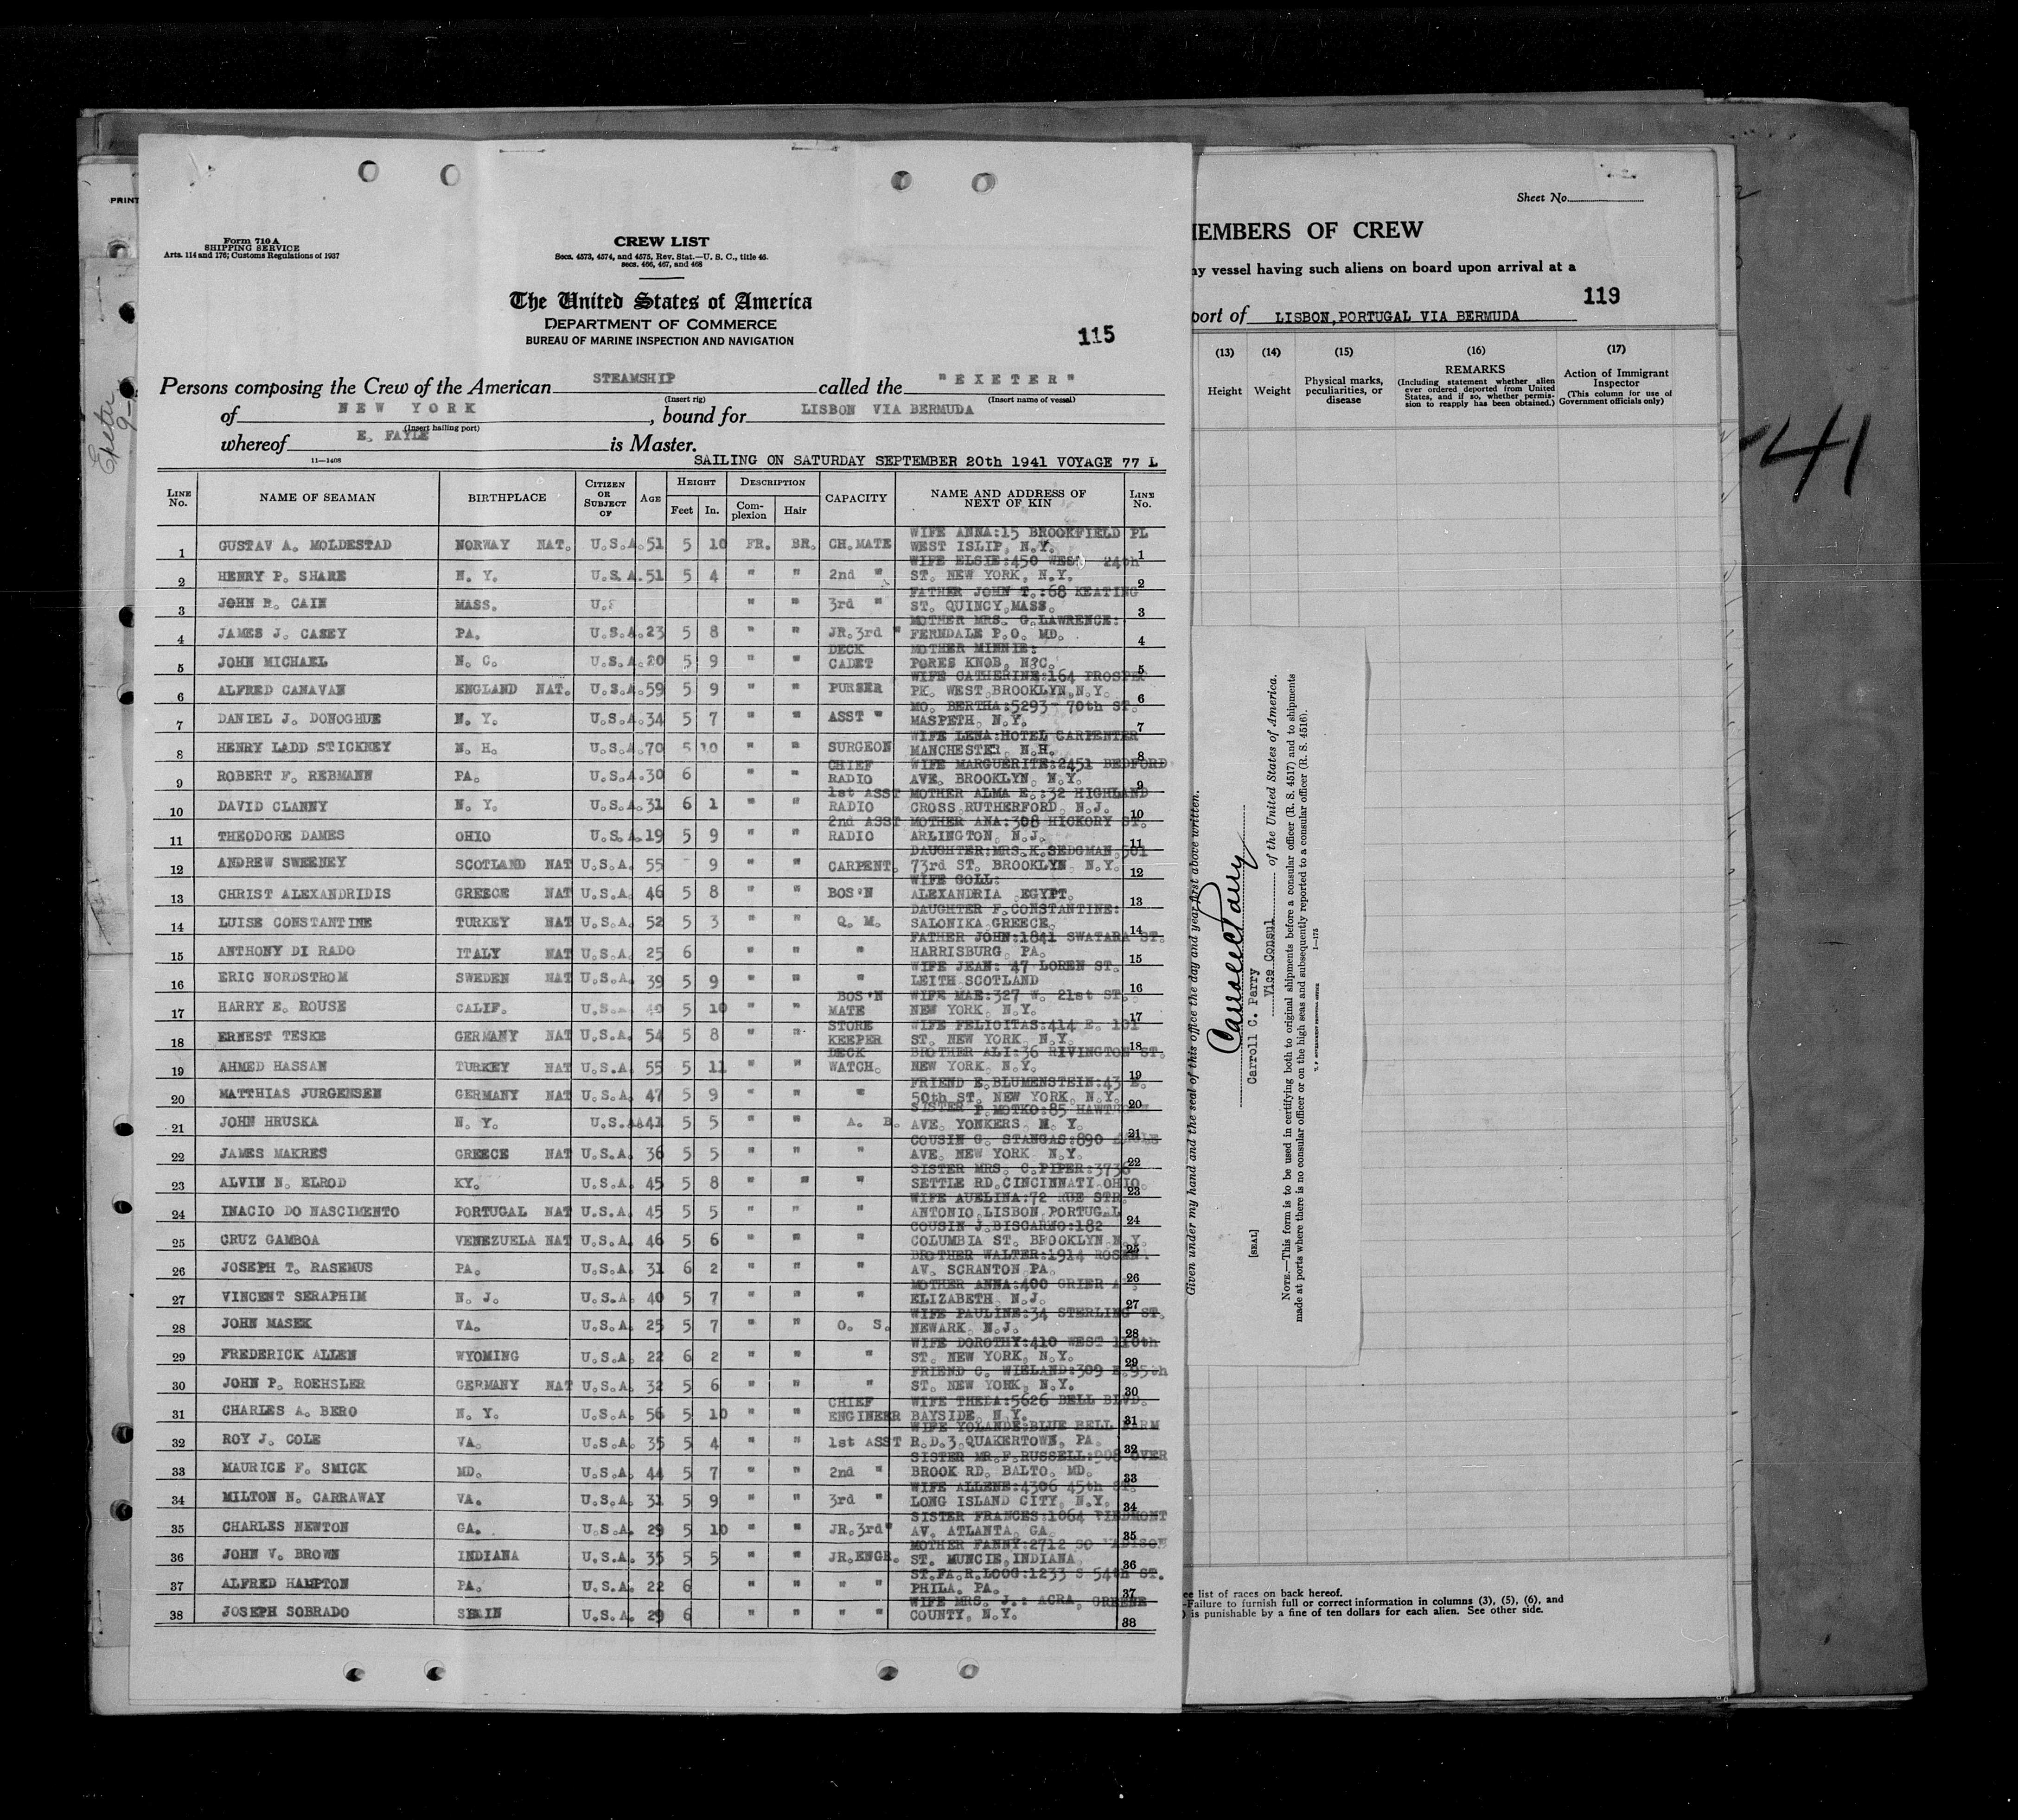 PRINT
Exeter
9-
Form 710 A
SHIPPING SERVICE
Arts. 114 and 176; Customs Regulations of 1937
CREW LIST
Secs. 4573, 4574, and 4575, Rev. Stat.—U. S. C., title 46.
secs. 466, 467, and 468
The United States of America
DEPARTMENT OF COMMERCE
BUREAU OF MARINE INSPECTION AND NAVIGATION
115
Persons composing the Crew of the American STEAMSHIP called the "EXETER"
(Insert rig) (Insert name of vessel)
of NEW YORK, bound for LISBON VIA BERMUDA
(Insert hailing port)
whereof E. FAYLE is Master.
11—1408
SAILING ON SATURDAY SEPTEMBER 20th 1941 VOYAGE 77 L
LINE No. NAME OF SEAMAN BIRTHPLACE CITIZEN OR SUBJECT OF AGE HEIGHT Feet In. DESCRIPTION Complexion Hair CAPACITY NAME AND ADDRESS OF NEXT OF KIN LINE No.
1 GUSTAV A. MOLDESTAD NORWAY NAT. U.S.A. 51 5 10 FR. BR. CH.MATE WIFE ANNA:15 BROOKFIELD PL WEST ISLIP, N.Y. 1
2 HENRY P. SHARE N. Y. U.S.A. 51 5 4 " " 2nd " WIFE ELSIE:450 WEST 24th ST. NEW YORK, N.Y. 2
3 JOHN R. CAIN MASS. U.S " " 3rd " FATHER JOHN T.:68 KEATING ST. QUINCY,MASS. 3
4 JAMES J. CASEY PA. U.S.A. 23 5 8 " " JR.3rd " MOTHER MRS. G.LAWRENCE: FERNDALE P.O. MD. 4
5 JOHN MICHAEL N. C. U.S.A. 20 5 9 " " DECK CADET MOTHER MINNIE: PORES KNOB, N?C. 5
6 ALFRED CANAVAN ENGLAND NAT. U.S.A. 59 5 9 " " PURSER WIFE CATHERINE:164 PROSPEK PK. WEST BROOKLYN,N.Y. 6
7 DANIEL J. DONOGHUE N. Y. U.S.A. 34 5 7 " " ASST " MO. BERTHA:5293- 70th ST. MASPETH, N.Y. 7
8 HENRY LADD STICKNEY N. H. U.S.A. 70 5 10 " " SURGEON WIFE LENA:HOTEL CARPENTER MANCHESTER, N.H. 8
9 ROBERT F. REBMANN PA. U.S.A. 30 6 " " CHIEF RADIO WIFE MARGUERITE:2451 BEDFORD AVE. BROOKLYN, N.Y. 9
10 DAVID CLANNY N. Y. U.S.A. 31 6 1 " " 1st ASST RADIO MOTHER ALMA E.:32 HIGHLAND CROSS RUTHERFORD, N.J. 10
11 THEODORE DAMES OHIO U.S.A. 19 5 9 " " 2nd ASST RADIO MOTHER ANA:308 HICKORY ST. ARLINGTON, N.J. 11
12 ANDREW SWEENEY SCOTLAND NAT U.S.A. 55 9 " " CARPENT. DAUGHTER:MRS.K.SEDGMAN,501 73rd ST. BROOKLYN, N.Y. 12
13 CHRIST ALEXANDRIDIS GREECE NAT U.S.A. 46 5 8 " " BOS'N WIFE GOLL: ALEXANDRIA EGYPT. 13
14 LUISE CONSTANTINE TURKEY NAT U.S.A. 52 5 3 " " Q. M. DAUGHTER F.CONSTANTINE: SALONIKA,GREECE. 14
15 ANTHONY DI RADO ITALY NAT U.S.A. 25 6 " " " FATHER JOHN:1841 SWATARA ST. HARRISBURG, PA. 15
16 ERIC NORDSTROM SWEDEN NAT U.S.A. 39 5 9 " " " WIFE JEAN: 47 LOREN ST. LEITH SCOTLAND 16
17 HARRY E. ROUSE CALIF. U.S. 40 5 10 " " BOS'N MATE WIFE MAE:327 W. 21st ST. NEW YORK, N.Y. 17
18 ERNEST TESKE GERMANY NAT U.S.A. 54 5 8 " " STORE KEEPER WIFE FELICITAS:414 E. 101 ST. NEW YORK, N.Y. 18
19 AHMED HASSAN TURKEY NAT U.S.A. 55 5 11 " " DECK WATCH. BROTHER ALI:36 RIVINGTON ST. NEW YORK, N.Y. 19
20 MATTHIAS JURGENSEN GERMANY NAT U.S.A. 47 5 9 " " " FRIEND E.BLUMENSTEIN:43 E. 50th ST. NEW YORK, N.Y. 20
21 JOHN HRUSKA N. Y. U.S.A. 41 5 5 " " A. B. SISTER P.MOTKO:85 AVE. YONKERS N. Y. 21
22 JAMES MAKRES GREECE NAT U.S.A. 36 5 5 " " " COUSIN G. STANGAS:890 EAGLE AVE. NEW YORK N.Y. 22
23 ALVIN N. ELROD KY. U.S.A. 45 5 8 " " " SISTER MRS. C.PIPER:3736 SETTLE RD.CINCINNATI OHIO 23
24 INACIO DO NASCIMENTO PORTUGAL NAT U.S.A. 45 5 5 " " " WIFE AUELINA:72 RUE STR. ANTONIO,LISBON PORTUGAL 24
25 CRUZ GAMBOA VENEZUELA NAT U.S.A. 46 5 6 " " " COUSIN J.BISCARNO:182 COLUMBIA ST. BROOKLYN N.Y. 25
26 JOSEPH T. RASEMUS PA. U.S.A. 31 6 2 " " " BROTHER WALTER:1914 ROSEN. AV. SCRANTON PA. 26
27 VINCENT SERAPHIM N. J. U.S.A. 40 5 7 " " " MOTHER ANNA:400 GRIER A ELIZABETH, N.J. 27
28 JOHN MASEK VA. U.S.A. 25 5 7 " " O. S. WIFE PAULINE:34 STERLING ST. NEWARK, N.J. 28
29 FREDERICK ALLEN WYOMING U.S.A. 22 6 2 " " " WIFE DOROTHY:410 WEST 110th ST. NEW YORK, N.Y. 29
30 JOHN P. ROEHSLER GERMANY NAT U.S.A. 32 5 6 " " " FRIEND C. WIELAND:309 E.95th ST. NEW YORK, N.Y. 30
31 CHARLES A. BERO N. Y. U.S.A. 56 5 10 " " CHIEF ENGINEER WIFE THEDA:5626 BELL BLVD. BAYSIDE, N.Y. 31
32 ROY J. COLE VA. U.S.A. 35 5 4 " " 1st ASST WIFE YOLANDE:BLUE BELL FARM R.D.3,QUAKERTOWN, PA. 32
33 MAURICE F. SMICK MD. U.S.A. 44 5 7 " " 2nd " SISTER MR.F.RUSSELL:908 OVER BROOK RD. BALTO. MD. 33
34 MILTON N. CARRAWAY VA. U.S.A. 31 5 9 " " 3rd " WIFE ALLENE:4306 45th ST. LONG ISLAND CITY, N.Y. 34
35 CHARLES NEWTON GA. U.S.A. 29 5 10 " " JR.3rd" SISTER FRANCES:1064 PIEDMONT AV. ATLANTA, GA. 35
36 JOHN V. BROWN INDIANA U.S.A. 35 5 5 " " JR.ENGR. MOTHER FANNY:2712 SO MADISON ST. MUNCIE,INDIANA 36
37 ALFRED HAMPTON PA. U.S.A. 22 6 " " " " ST.FA.R.LOOG:1233 S 54th ST. PHILA. PA. 37
38 JOSEPH SOBRADO SPAIN U.S.A. 29 6 " " " " WIFE MRS. J.: ACRA, GREENE COUNTY, N.Y. 38
Sheet No.
MEMBERS OF CREW
ny vessel having such aliens on board upon arrival at a
119
port of LISBON,PORTUGAL VIA BERMUDA
(13) Height
(14) Weight
(15) Physical marks, peculiarities, or disease
(16) REMARKS
(Including statement whether alien ever ordered deported from United States, and if so, whether permission to reapply has been obtained.)
(17) Action of Immigrant Inspector
(This column for use of Government officials only)
41
Given under my hand and the seal of this office the day and year first above written.
Carroll C. Parry
Carroll C. Parry
Vice Consul of the United States of America.
[SEAL]
NOTE.—This form is to be used in certifying both to original shipments before a consular officer (R. S. 4517) and to shipments
made at ports where there is no consular officer or on the high seas and subsequently reported to a consular officer (R. S. 4516).
U. S. GOVERNMENT PRINTING OFFICE 1—175
ee list of races on back hereof.
-Failure to furnish full or correct information in columns (3), (5), (6), and
) is punishable by a fine of ten dollars for each alien. See other side.